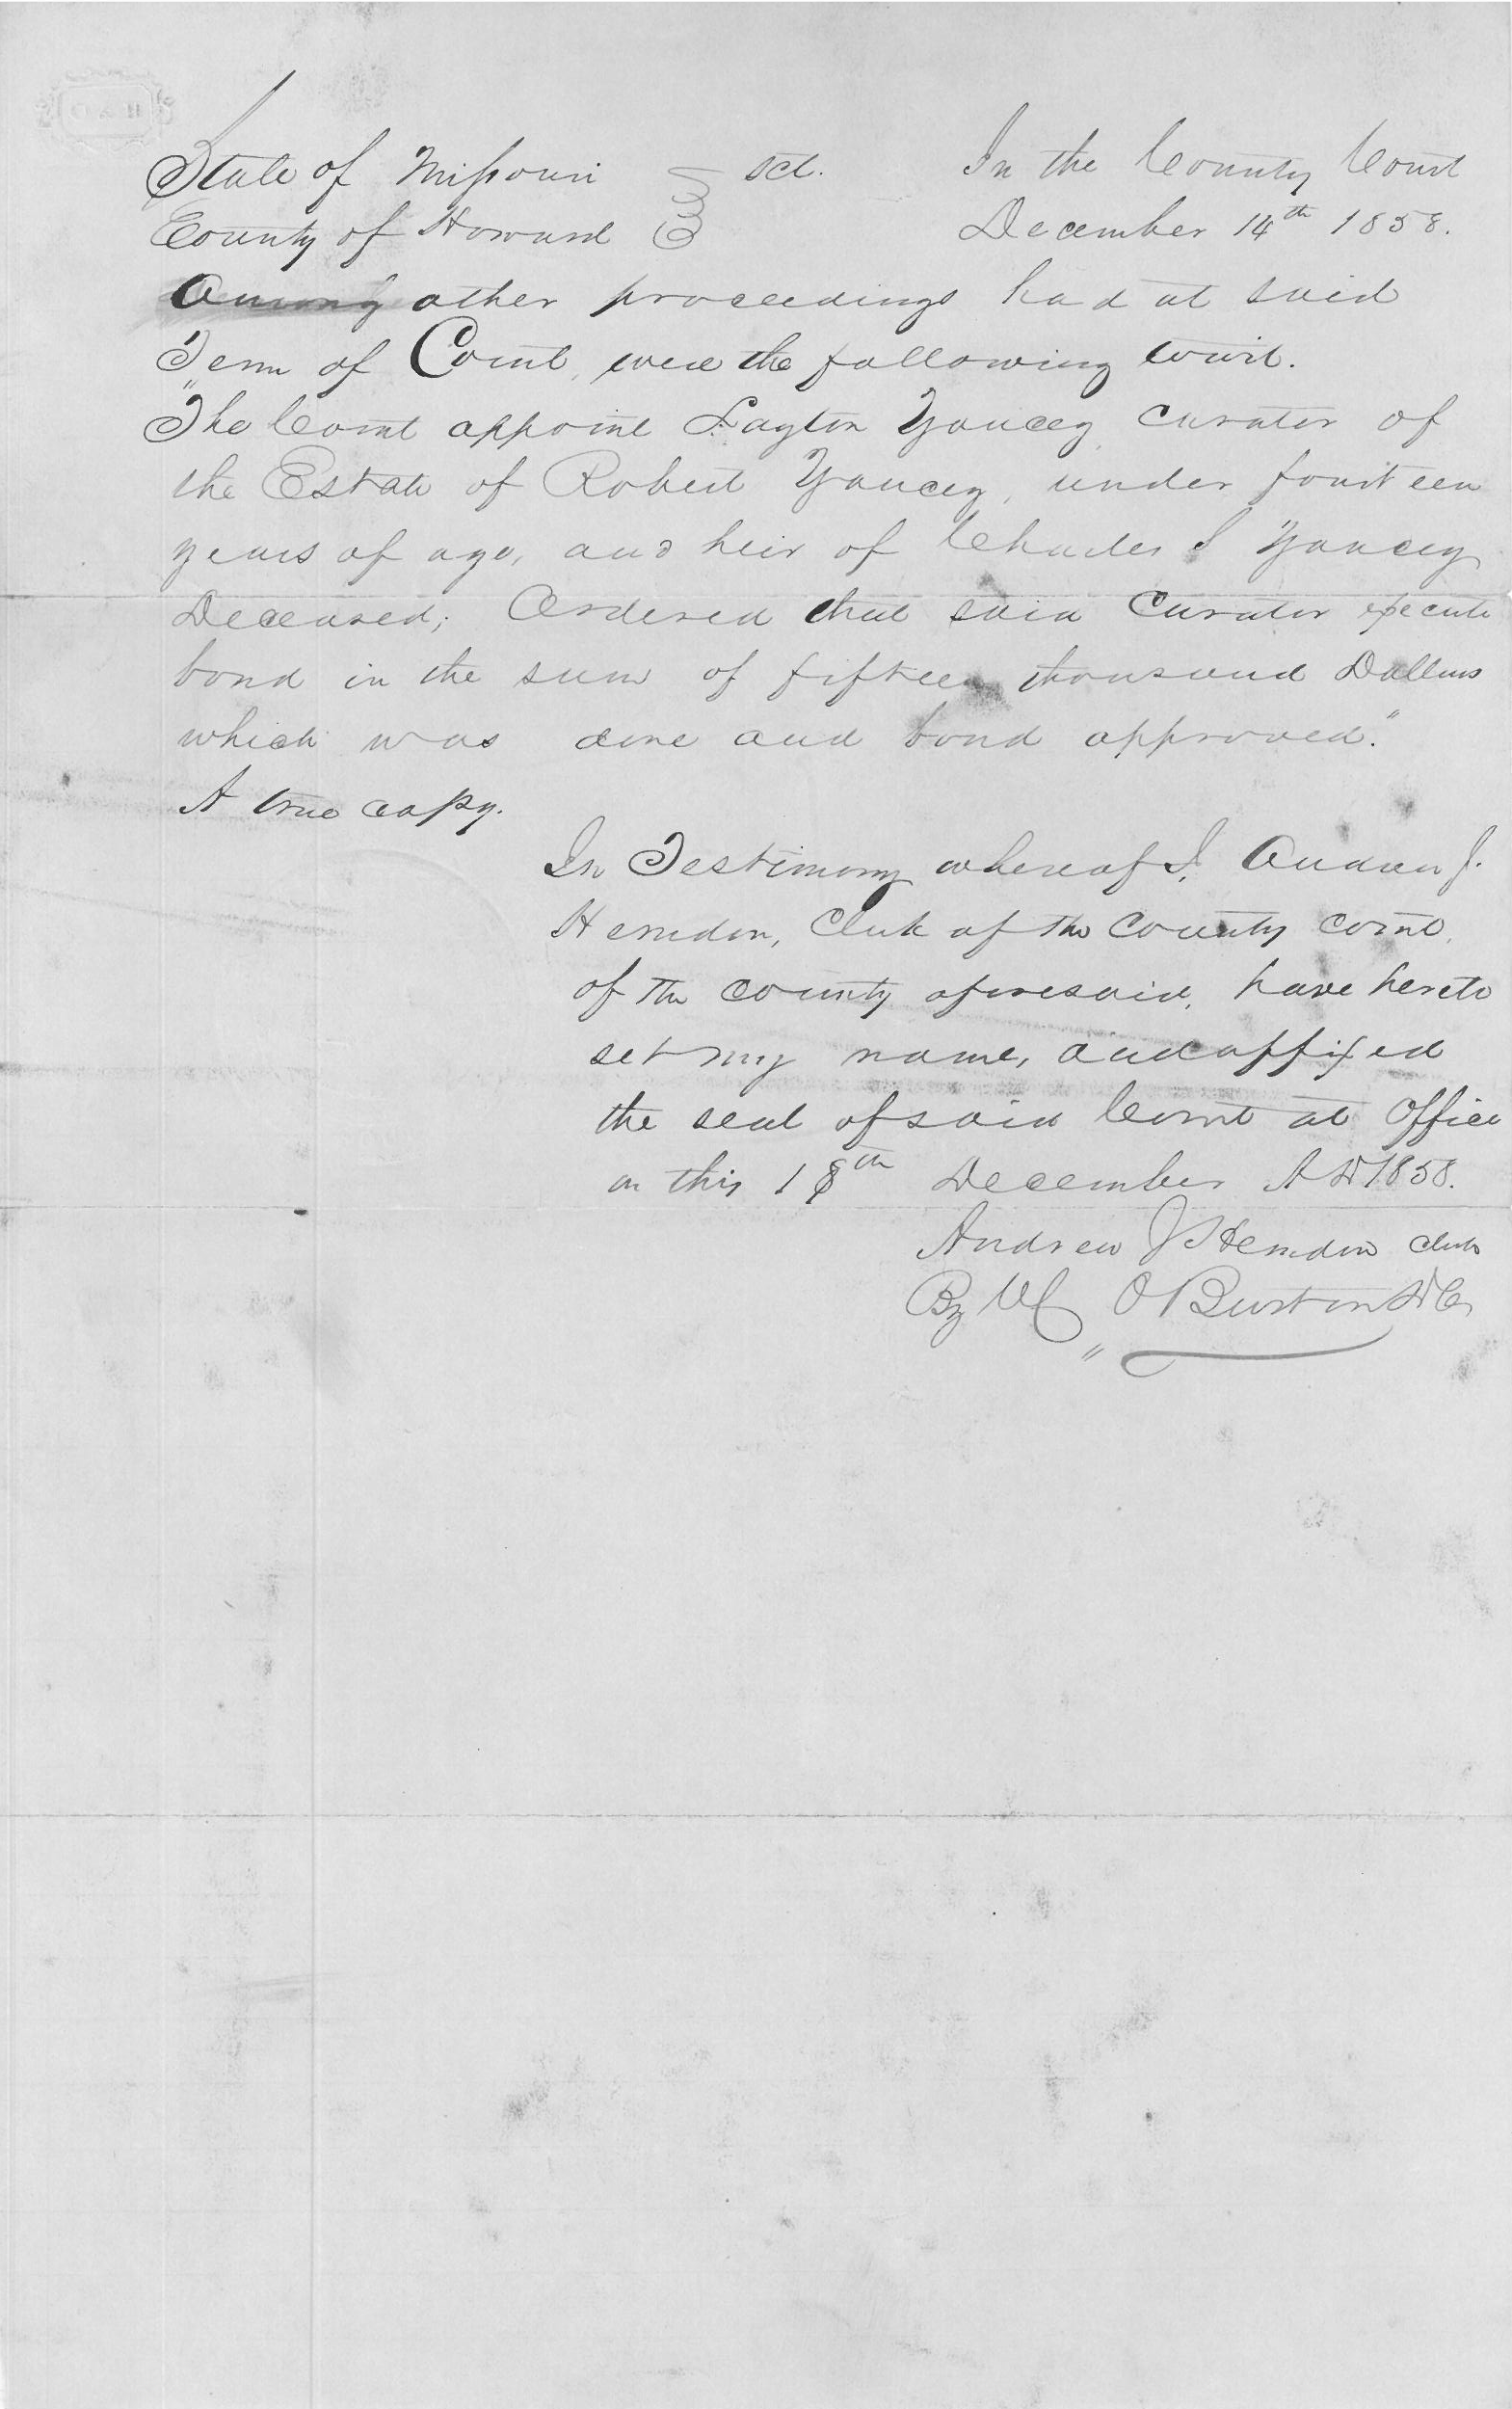 State of Missouri } Sct. In the County Court
County of Howard } December 14th 1858.
Among other proceedings had at said
Term of Court, were the following towit.
"The Court appoint Layton Yancey, curator of
the Estate of Robert Yancey, under fourteen
years of age, and heir of Charles S Yancey
Deceased; Ordered that said Curator execute
bond in the sum of fifteen thousand Dollars
which was done and bond approved."
A true copy.
In Testimony whereof I, Andrew J.
Herndon, Clerk of the County Court,
of the County aforesaid, have hereto
set my name, and affixed
the seal of said Court at Office
on this 18th December AD 1858.
Andrew J Herndon Clerk
By O Burton DC